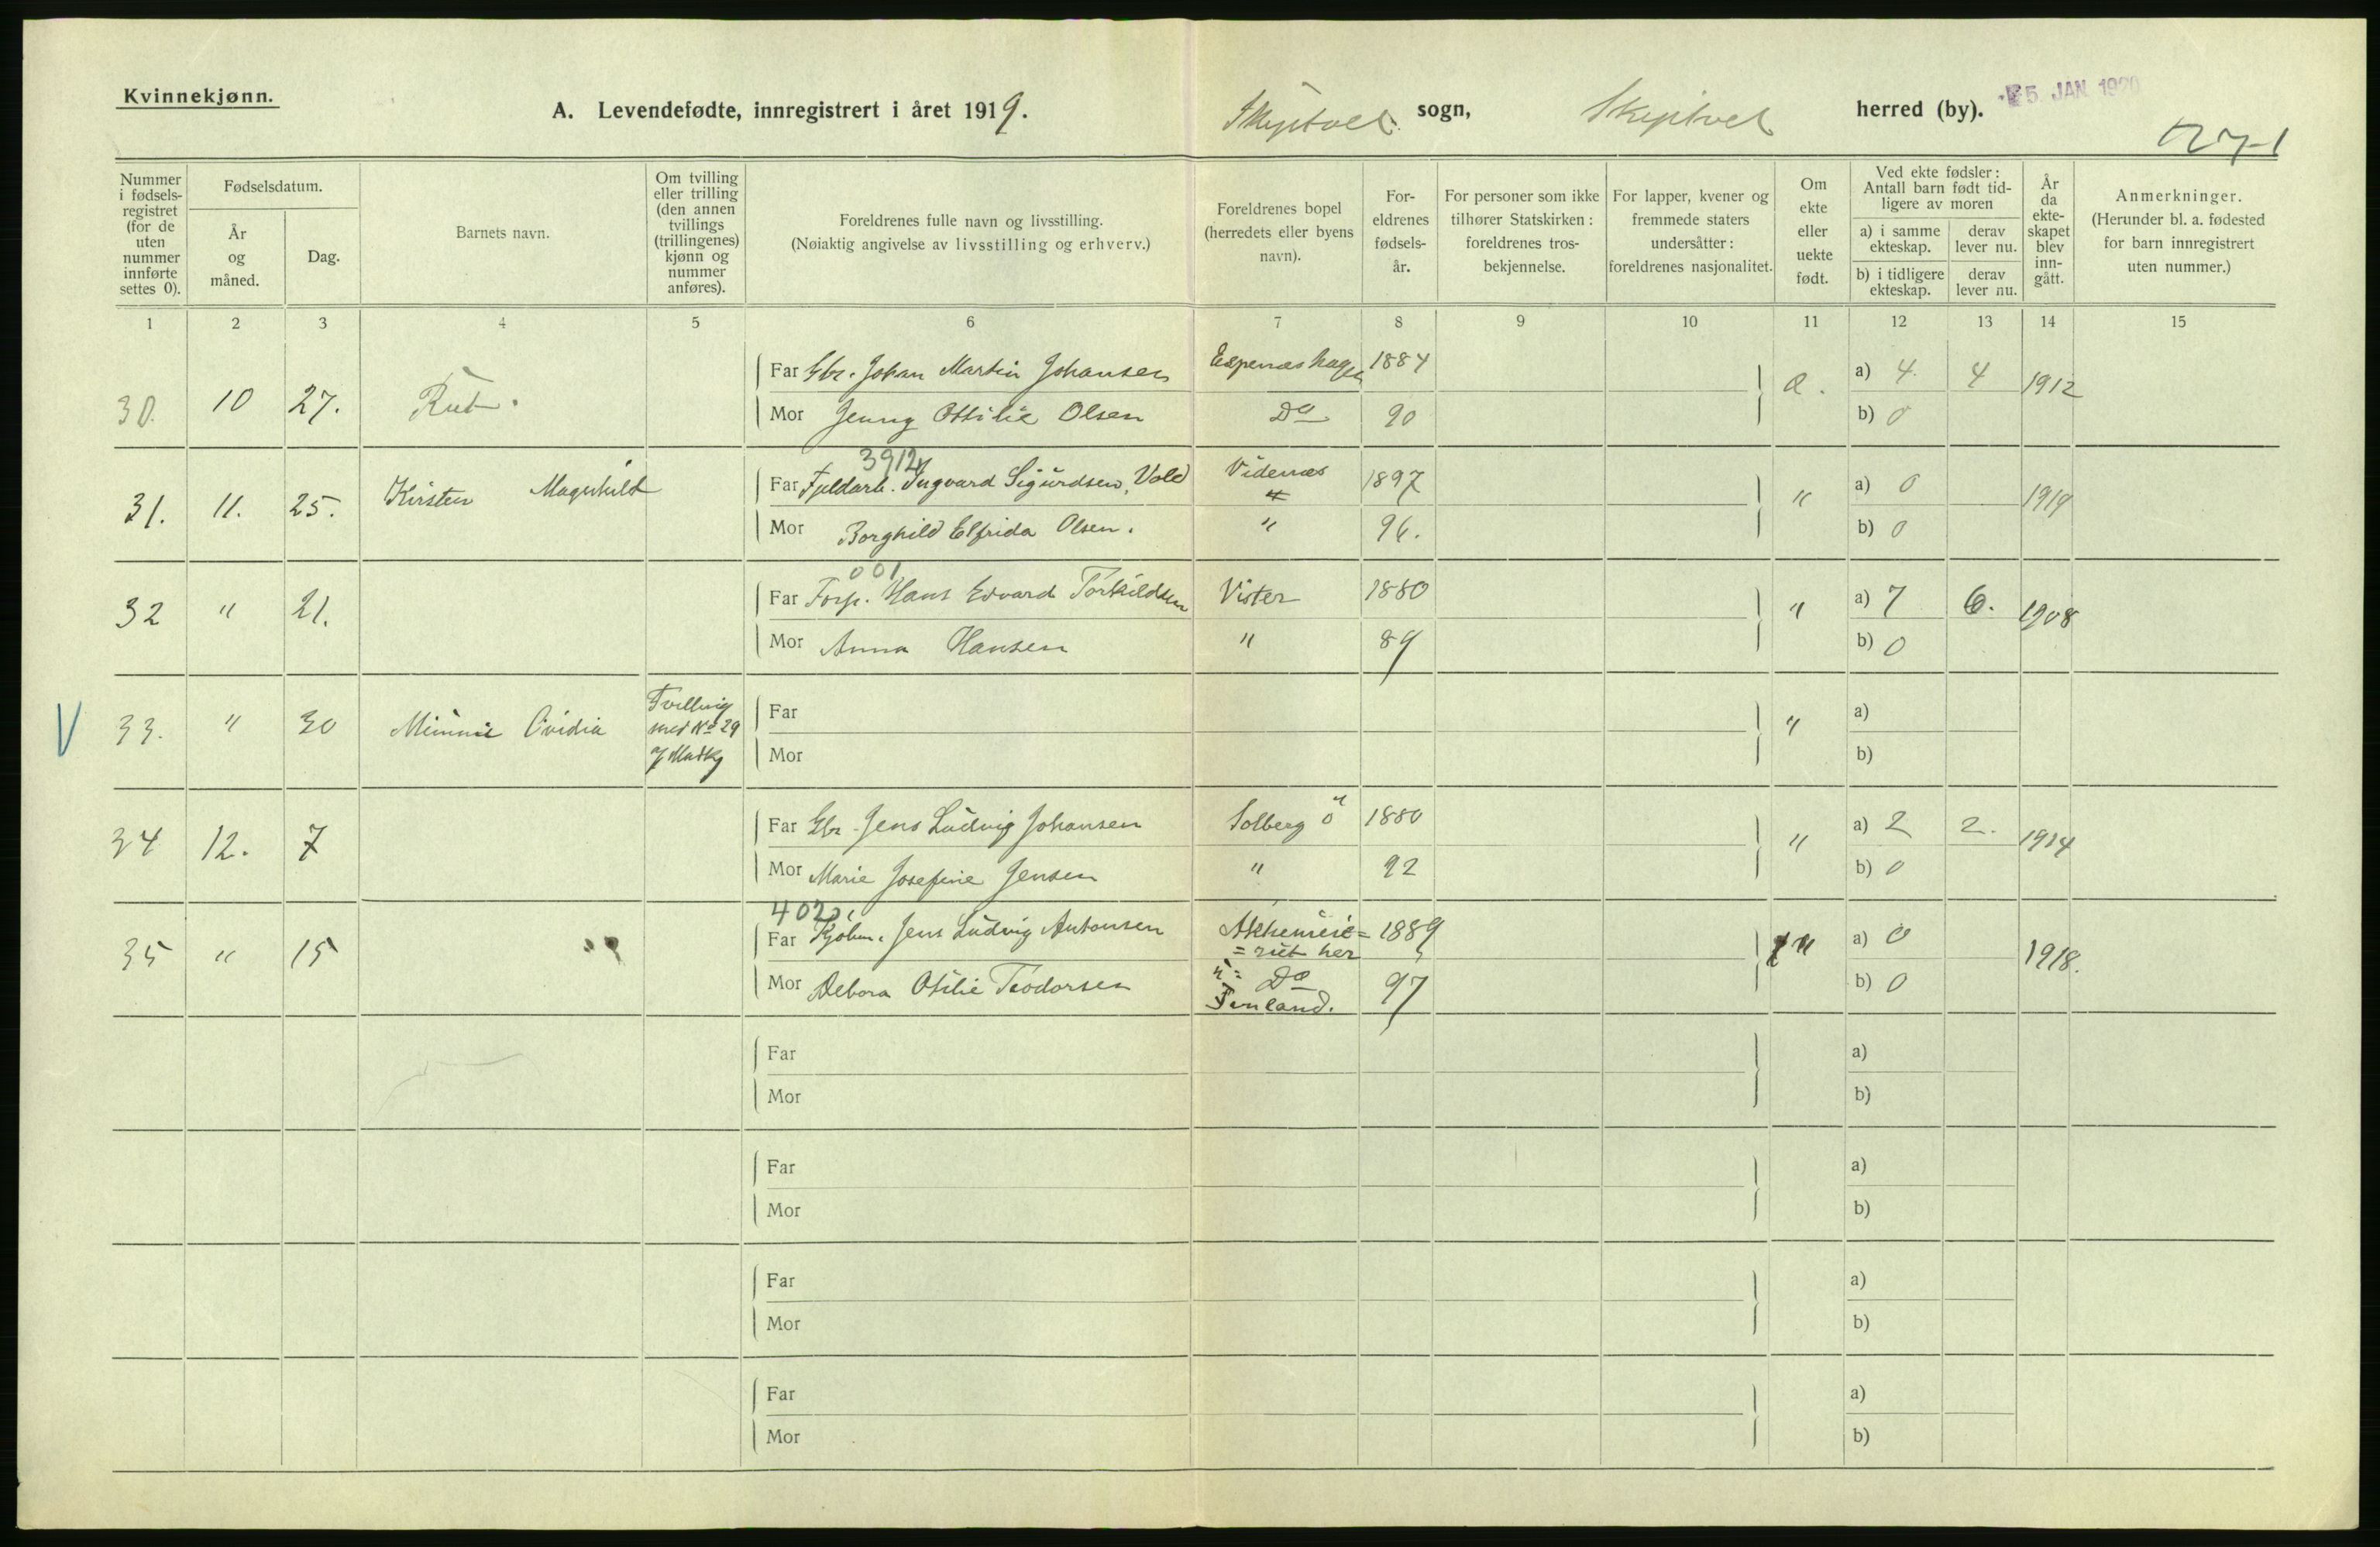 Kvinnekjønn.
A. Levendefødte, innregistrert i året 1919. Skiptvet sogn, Skiptvet herred (by).
5. JAN. 1920
Nummer i fødsels-registret (for de uten nummer innførte settes 0).
Fødselsdatum.
År og måned.
Dag.
Barnets navn.
Om tvilling eller trilling (den annen tvillings (trillingenes) kjønn og nummer anføres).
Foreldrenes fulle navn og livsstilling.
(Nøiaktig angivelse av livsstilling og erhverv.)
Foreldrenes bopel (herredets eller byens navn).
For-eldrenes fødsels-år.
For personer som ikke tilhører Statskirken: foreldrenes tros-bekjennelse.
For lapper, kvener og fremmede staters undersåtter: foreldrenes nasjonalitet.
Om ekte eller uekte født.
Ved ekte fødsler: Antall barn født tid-ligere av moren
a) i samme ekteskap.
derav lever nu.
b) i tidligere ekteskap.
derav lever nu.
År da ekte-skapet blev inn-gått.
Anmerkninger.
(Herunder bl. a. fødested for barn innregistrert uten nummer.)
1 2 3 4 5 6 7 8 9 10 11 12 13 14 15
30. 10 27. Rut. Far Gbr. Johan Martin Johansen Espenæshagen 1884 a) 4. 4 1912
Mor Jenny Ottilie Olsen Do 90 b) 0
3912
31. 11. 25. Kirsten Magnhild Far Fjeldarb. Ingvard Sigurdsen Vold Videnæs 1897 " a) 0 1919
Mor Borghild Elfrida Olsen. " 96. b) 0
001
32 " 21. Far Forp. Hans Edvard Torkildsen Vister 1880 " a) 7 6. 1908
Mor Anna Hansen " 89 b) 0
V 33. " 30 Minnie Ovidia Tvilling med No 29 Far " a)
Mor b)
34 12. 7 Far Gbr. Jens Ludvig Johansen Solberg ö 1880 " a) 2 2. 1914
Mor Marie Josefine Jensen " 92 b) 0
35 " 15 Far Jens Ludvig Antonsen 1889 " a) 0 1918.
= rut her
Mor Debora Otilie Teodorsen Do 97 b) 0
Far a)
Mor b)
Far a)
Mor b)
Far a)
Mor b)
Far a)
Mor b)